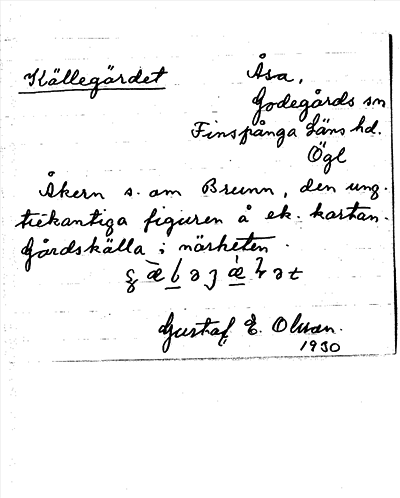 Källegärdet
Åsa,
Godegårds sn
Finspånga Läns hd.
Ögl
Åkern s. om Brunn, den ung.
trekantiga figuren å ek. kartan.
Gårdskälla i närheten.
Gustaf E. Olsson.
1930